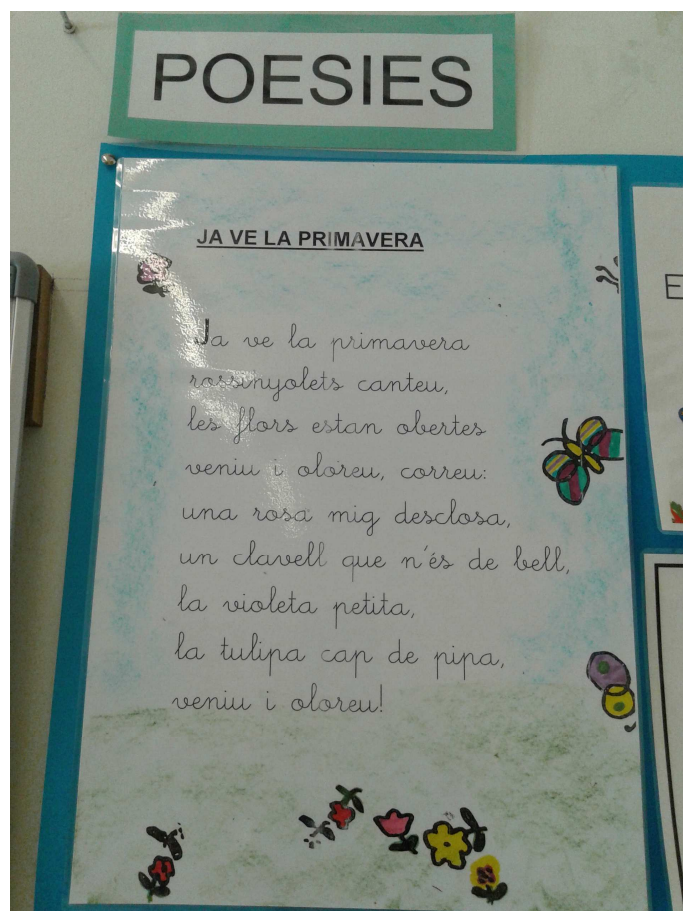 POESIES
JA VE LA PRIMAVERA
Ja ve la primavera
rossinyolets canteu,
les flors estan obertes
veniu i oloreu, correu:
una rosa mig desclosa,
un clavell que n'és de bell,
la violeta petita,
la tulipa cap de pipa,
veniu i oloreu!
E